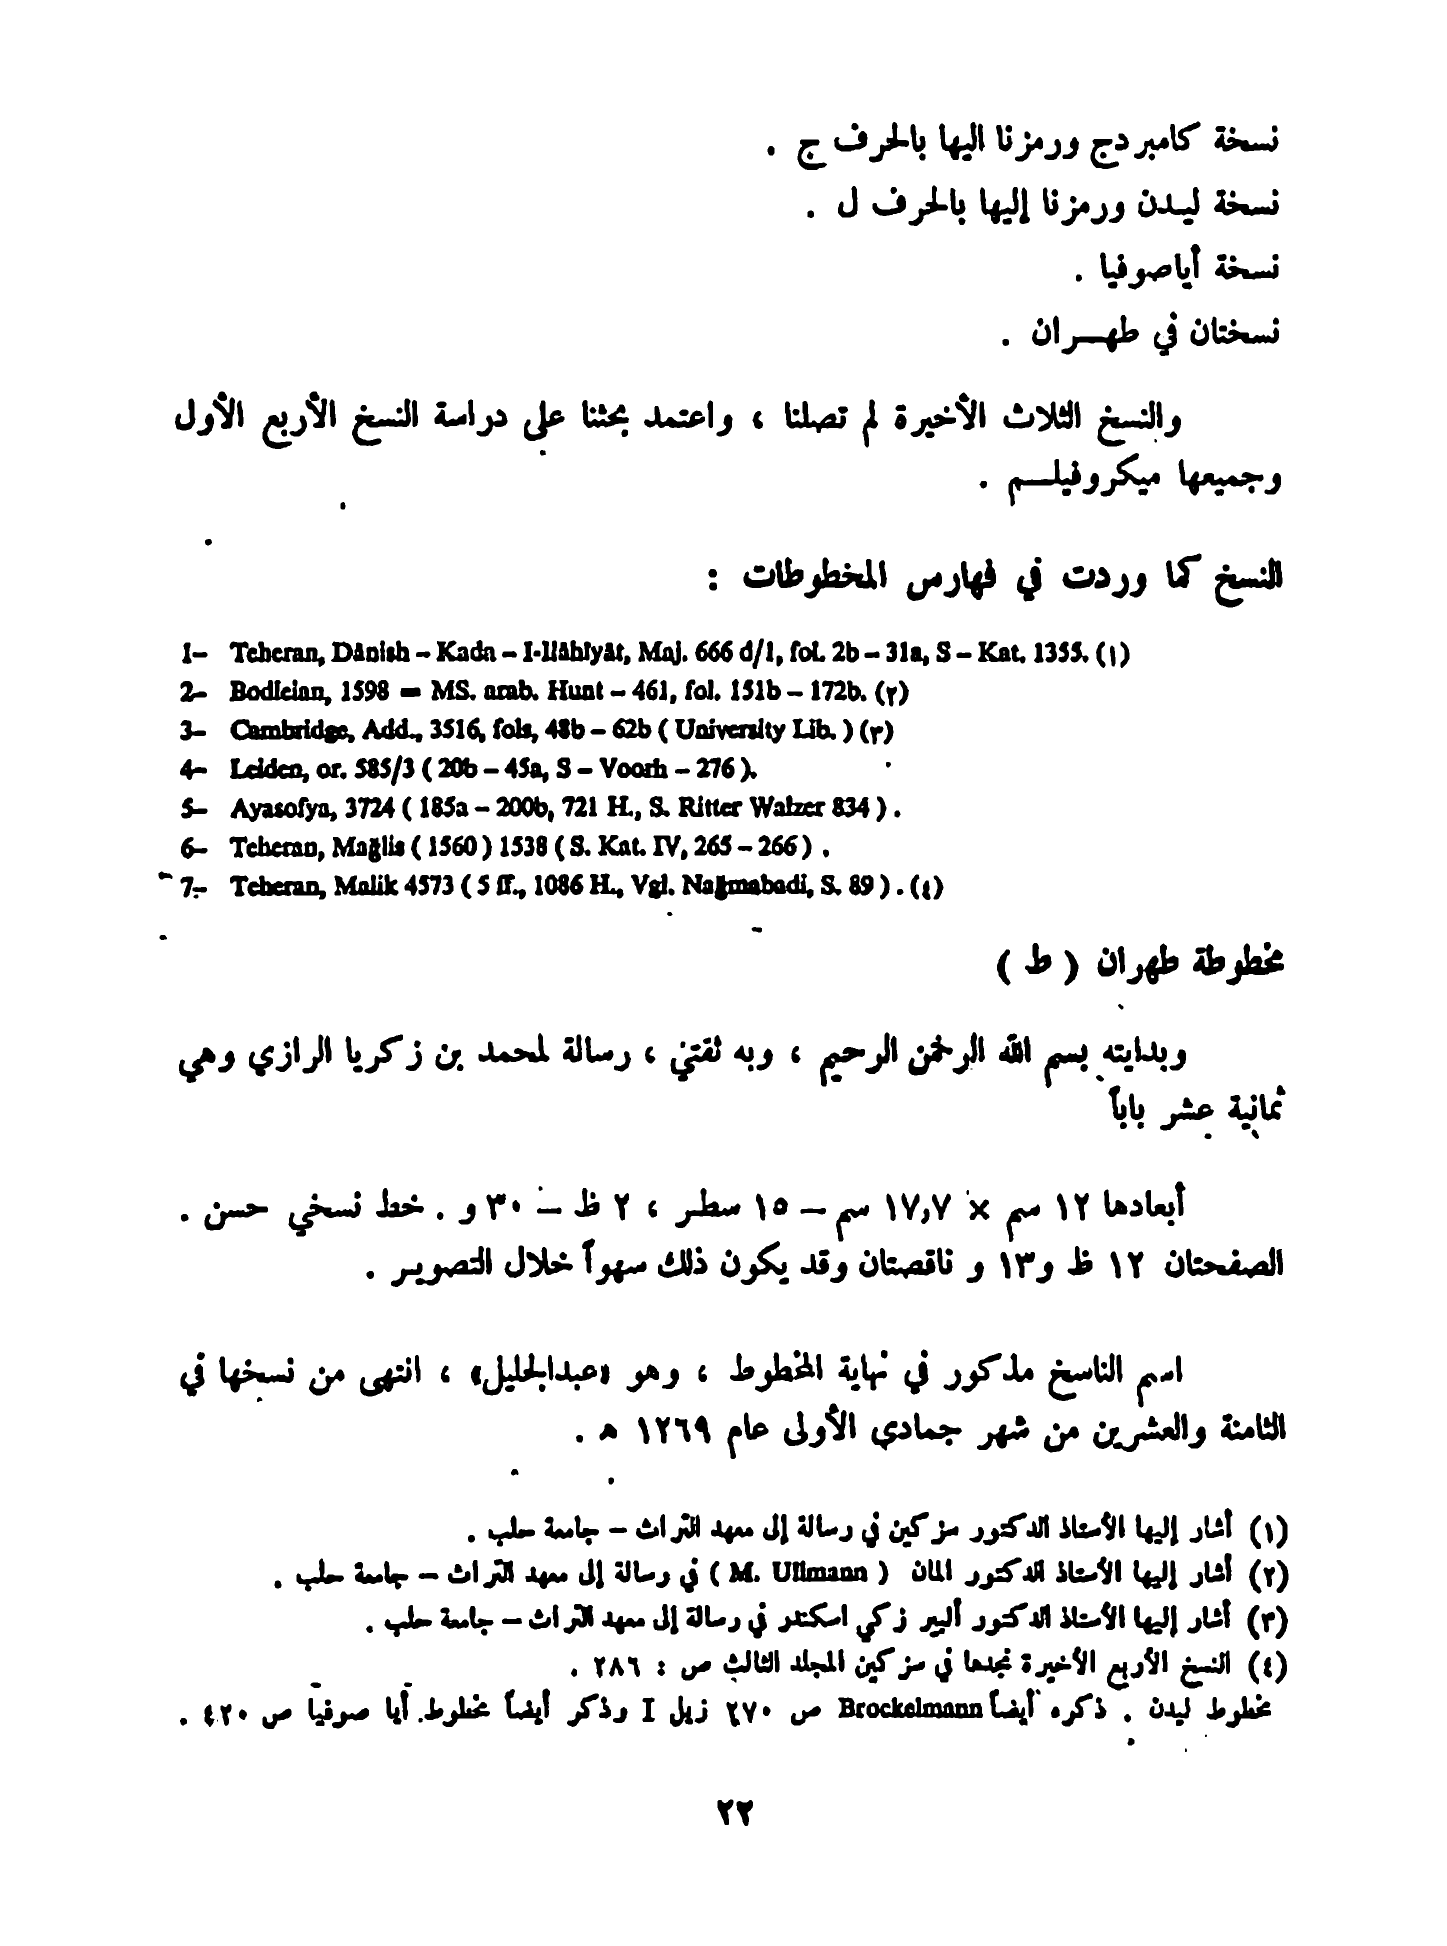 نسخة كامبردج ورمزنا اليها بالحرف ج .
نسخة ليدن ورمزنا إليها بالحرف ل .
نسخة أياصوفيا .
نسختان في طهران .
والنسخ الثلاث الأخيرة لم تصلنا ، واعتمد بحثنا على دراسة النسخ الأربع الأول
وجميعها ميكروفيلم .
النسخ كما وردت في فهارس المخطوطات :
1– Teheran, Dānish – Kada – I-Ilāhīyāt, Maj. 666 d/1, fol. 2b – 31a, S – Kat. 1355. (١)
2– Bodleian, 1598 = MS. arab. Hunt – 461, fol. 151b – 172b. (٢)
3– Cambridge, Add., 3516, fols, 48b – 62b ( University Lib. ) (٣)
4– Leiden, or. 585/3 ( 20b – 45a, S – Voorh – 276 ).
5– Ayasofya, 3724 ( 185a – 200b, 721 H., S. Ritter Walzer 834 ) .
6– Teheran, Mağlis ( 1560 ) 1538 ( S. Kat. IV, 265 – 266 ) .
7– Teheran, Malik 4573 ( 5 ff., 1086 H., Vgl. Nağmabadi, S. 89 ) . (٤)
مخطوطة طهران ( ط )
وبدايته بسم الله الرحمن الرحيم ، وبه ثقتي ، رسالة لمحمد بن زكريا الرازي وهي
ثمانية عشر باباً
أبعادها ١٢ سم × ١٧,٧ سم – ١٥ سطر ، ٢ ظ – ٣٠ و . خط نسخي حسن .
الصفحتان ١٢ ظ و١٣ و ناقصتان وقد يكون ذلك سهواً خلال التصوير .
اسم الناسخ مذكور في نهاية المخطوط ، وهو «عبدالجليل» ، انتهى من نسخها في
الثامنة والعشرين من شهر جمادي الأولى عام ١٢٦٩ ه .
(١) أشار إليها الأستاذ الدكتور سزكين في رسالة إلى معهد التراث – جامعة حلب .
(٢) أشار إليها الأستاذ الدكتور المان ( M. Ullmann ) في رسالة إلى معهد التراث – جامعة حلب .
(٣) أشار إليها الأستاذ الدكتور ألبير زكي اسكندر في رسالة إلى معهد التراث – جامعة حلب .
(٤) النسخ الأربع الأخيرة نجدها في سزكين المجلد الثالث ص : ٢٨٦ .
مخطوط ليدن . ذكره أيضاً Brockelmann ص ٢٧٠ زيل I وذكر أيضاً مخطوط أيا صوفيا ص ٤٢٠ .
٢٢